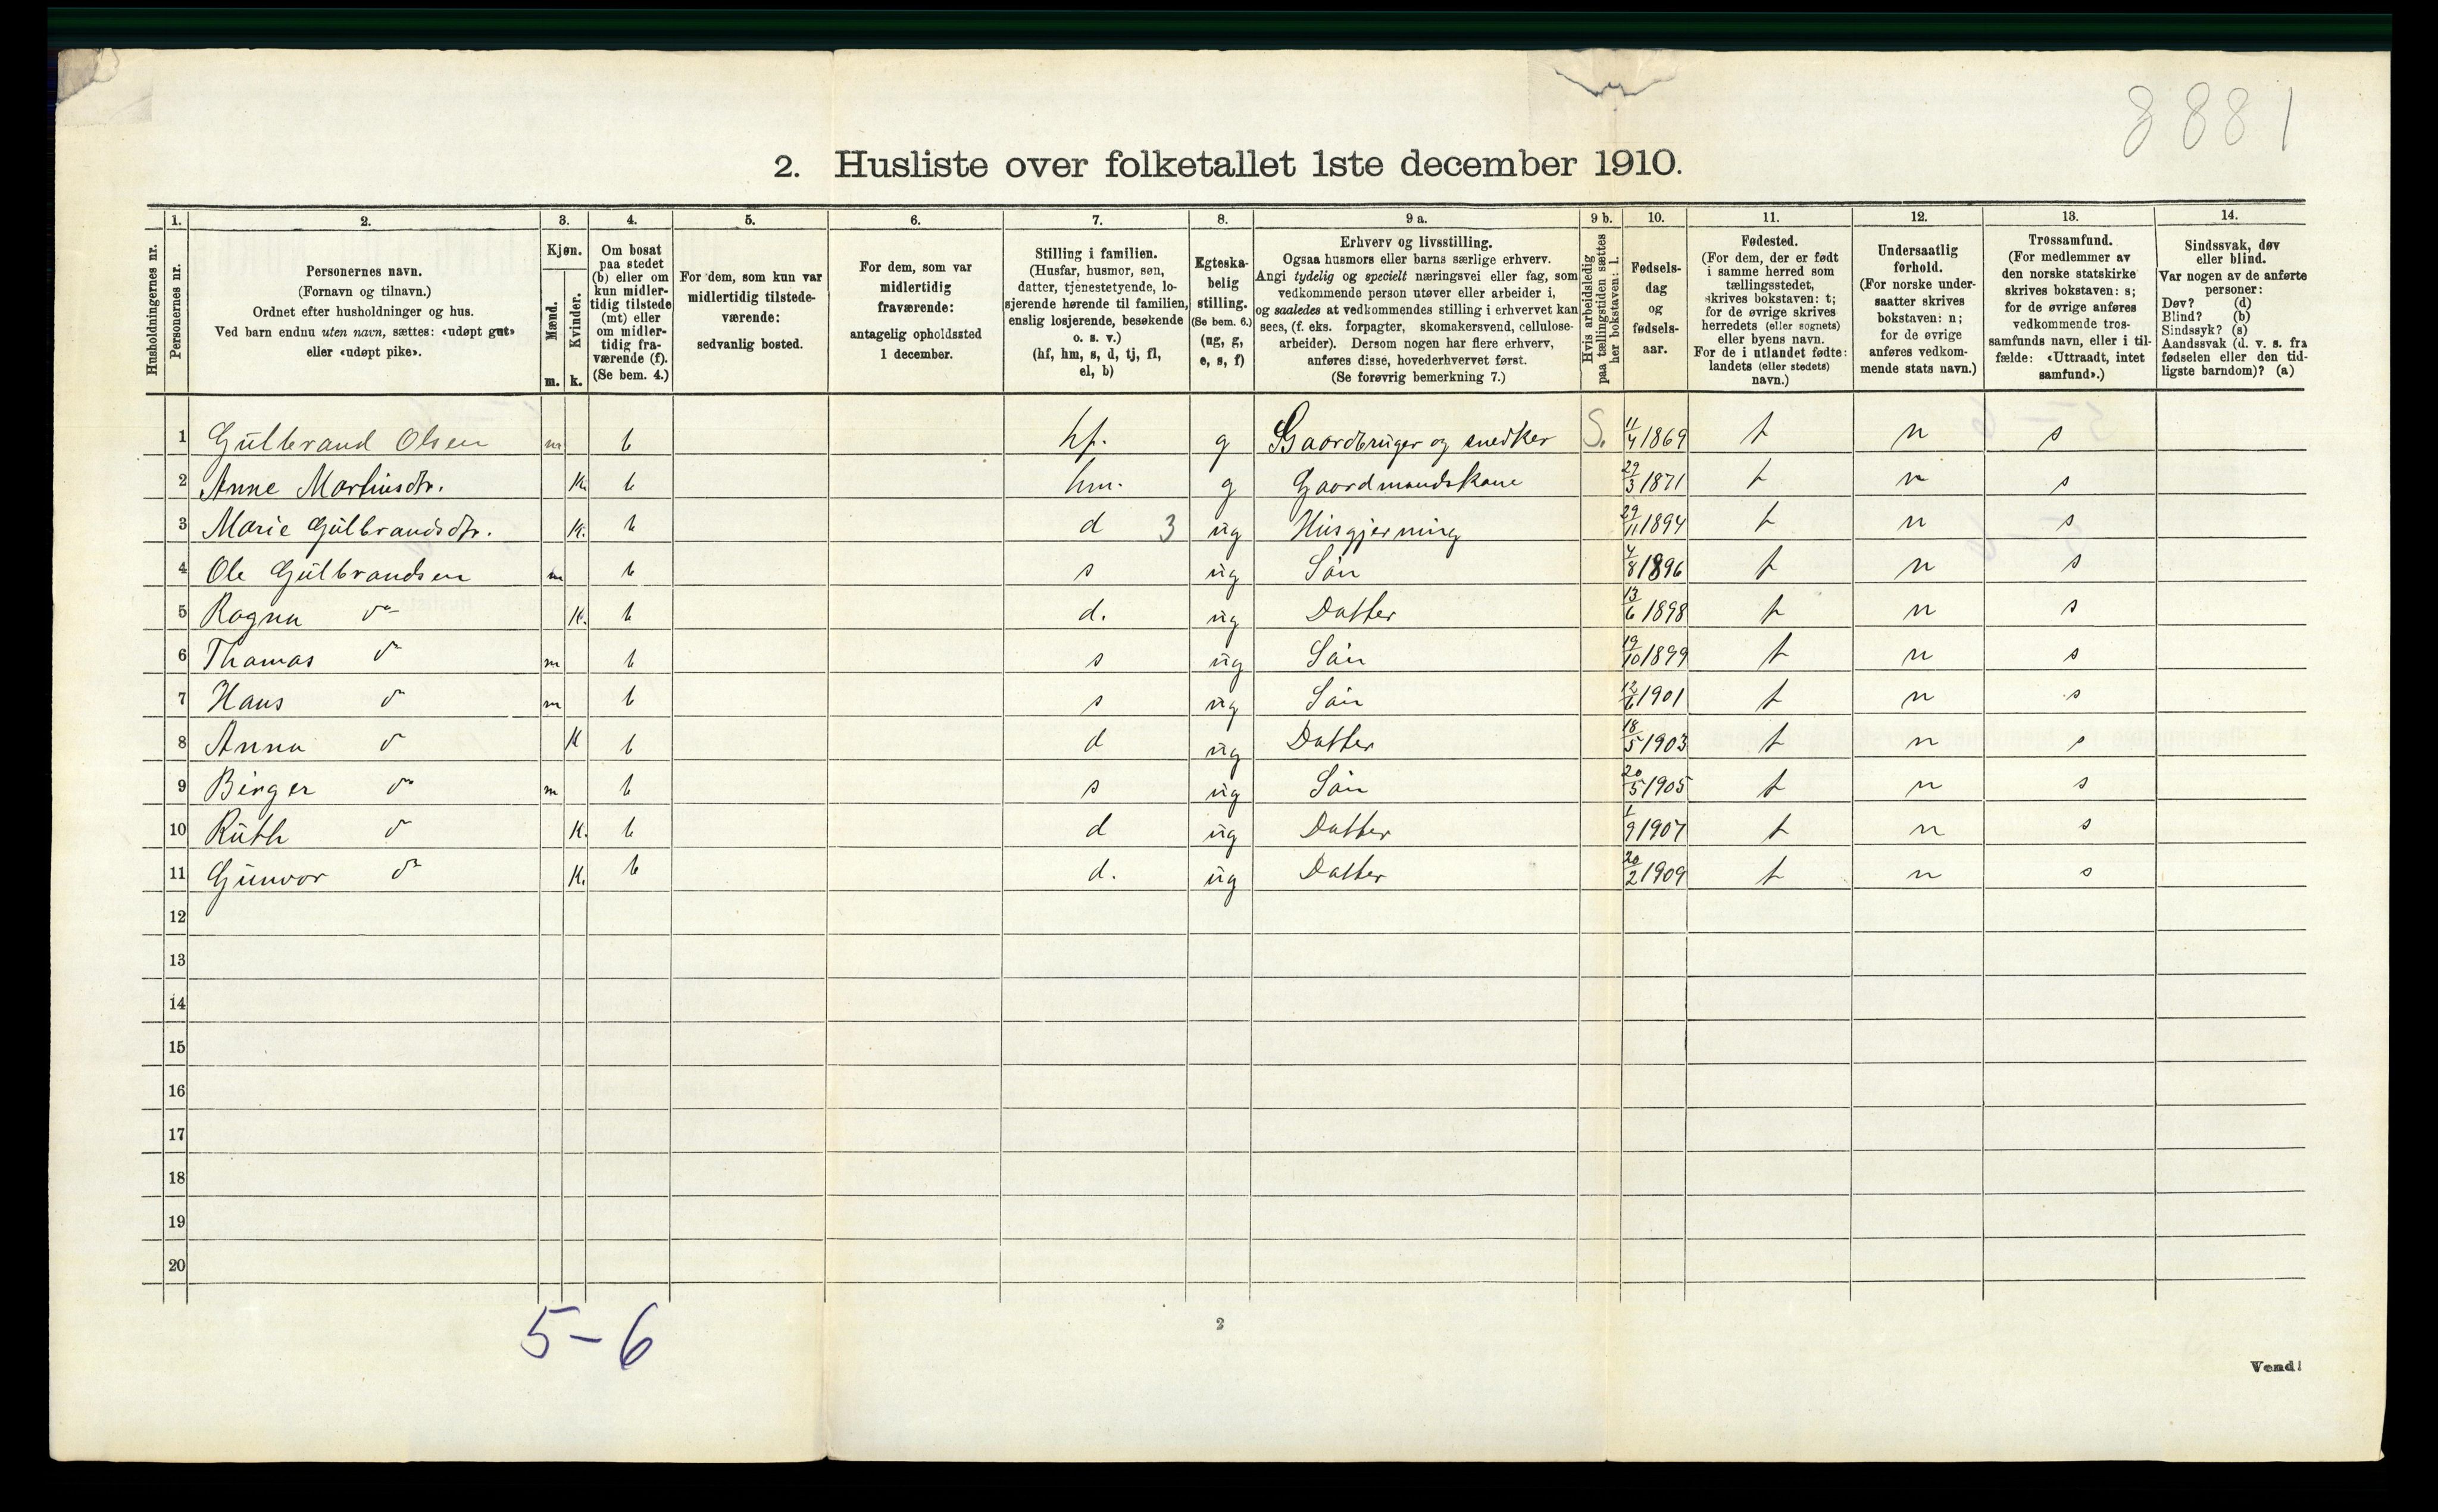 8881
2. Husliste over folketallet 1ste december 1910.
Husholdningernes nr.
1. Personernes nr.
2. Personernes navn.
(Fornavn og tilnavn.)
Ordnet efter husholdninger og hus.
Ved barn endnu uten navn, sættes: «udøpt gut»
eller «udøpt pike».
3. Kjøn.
Mænd. m.
Kvinder. k.
4. Om bosat
paa stedet
(b) eller om
kun midler-
tidig tilstede
(mt) eller
om midler-
tidig fra-
værende (f).
(Se bem. 4.)
5. For dem, som kun var
midlertidig tilstede-
værende:
sedvanlig bosted.
6. For dem, som var
midlertidig
fraværende:
antagelig opholdssted
1 december.
7. Stilling i familien.
(Husfar, husmor, søn,
datter, tjenestetyende, lo-
sjerende hørende til familien,
enslig losjerende, besøkende
o. s. v.)
(hf, hm, s, d, tj, fl,
el, b)
8. Egteska-
belig
stilling.
(Se bem. 6.)
(ug, g,
e, s, f)
9 a. Erhverv og livsstilling.
Ogsaa husmors eller barns særlige erhverv.
Angi tydelig og specielt næringsvei eller fag, som
vedkommende person utøver eller arbeider i,
og saaledes at vedkommendes stilling i erhvervet kan
sees, (f. eks. forpagter, skomakersvend, cellulose-
arbeider). Dersom nogen har flere erhverv,
anføres disse, hovederhvervet først.
(Se forøvrig bemerkning 7.)
9 b. Hvis arbeidsledig
paa tællingstiden sættes
her bokstaven: l.
10. Fødsels-
dag
og
fødsels-
aar.
11. Fødested.
(For dem, der er født
i samme herred som
tællingsstedet,
skrives bokstaven: t;
for de øvrige skrives
herredets (eller sognets)
eller byens navn.
For de i utlandet fødte:
landets (eller stedets)
navn.)
12. Undersaatlig
forhold.
(For norske under-
saatter skrives
bokstaven: n;
for de øvrige
anføres vedkom-
mende stats navn.)
13. Trossamfund.
(For medlemmer av
den norske statskirke
skrives bokstaven: s;
for de øvrige anføres
vedkommende tros-
samfunds navn, eller i til-
fælde: «Uttraadt, intet
samfund».)
14. Sindssvak, døv
eller blind.
Var nogen av de anførte
personer:
Døv? (d)
Blind? (b)
Sindssyk? (s)
Aandssvak (d. v. s. fra
fødselen eller den tid-
ligste barndom)? (a)
1 Gulbrand Olsen m b hf. g Gaardbruger og snedker S. 11/4 1869 t n s
2 Anne Martinsdtr. k. b hm. g Gaardmandskone 29/3 1871 t n s
3 Marie Gulbrandsdtr. k. b d 3 ug Husgjerning 29/11 1894 t n s
4 Ole Gulbrandsen m b s ug Søn 4/8 1896 t n s
5 Ragna do k. b d. ug Datter 13/6 1898 t n s
6 Thomas do m b s ug Søn 19/10 1899 t n s
7 Hans do m b s ug Søn 12/6 1901 t n s
8 Anna do k b d ug Datter 18/5 1903 t n s
9 Birger do m b s ug Søn 20/5 1905 t n s
10 Ruth do k. b d ug Datter 1/9 1907 t n s
11 Gunvor do k. b d. ug Datter 20/2 1909 t n s
12
13
14
15
16
17
18
19
20
5-6
2
Vend!